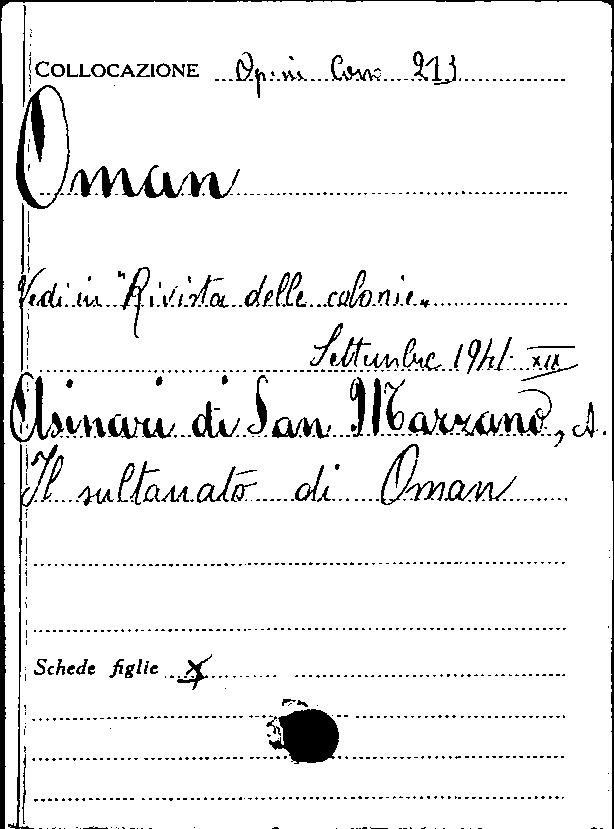 COLLOCAZIONE Op. in Cons 213
Oman
Vedi in "Rivista delle colonie"
Settembre 1941 XIX
Asinari di San Marzano, A.
Il sultanato di Oman
Schede figlie X